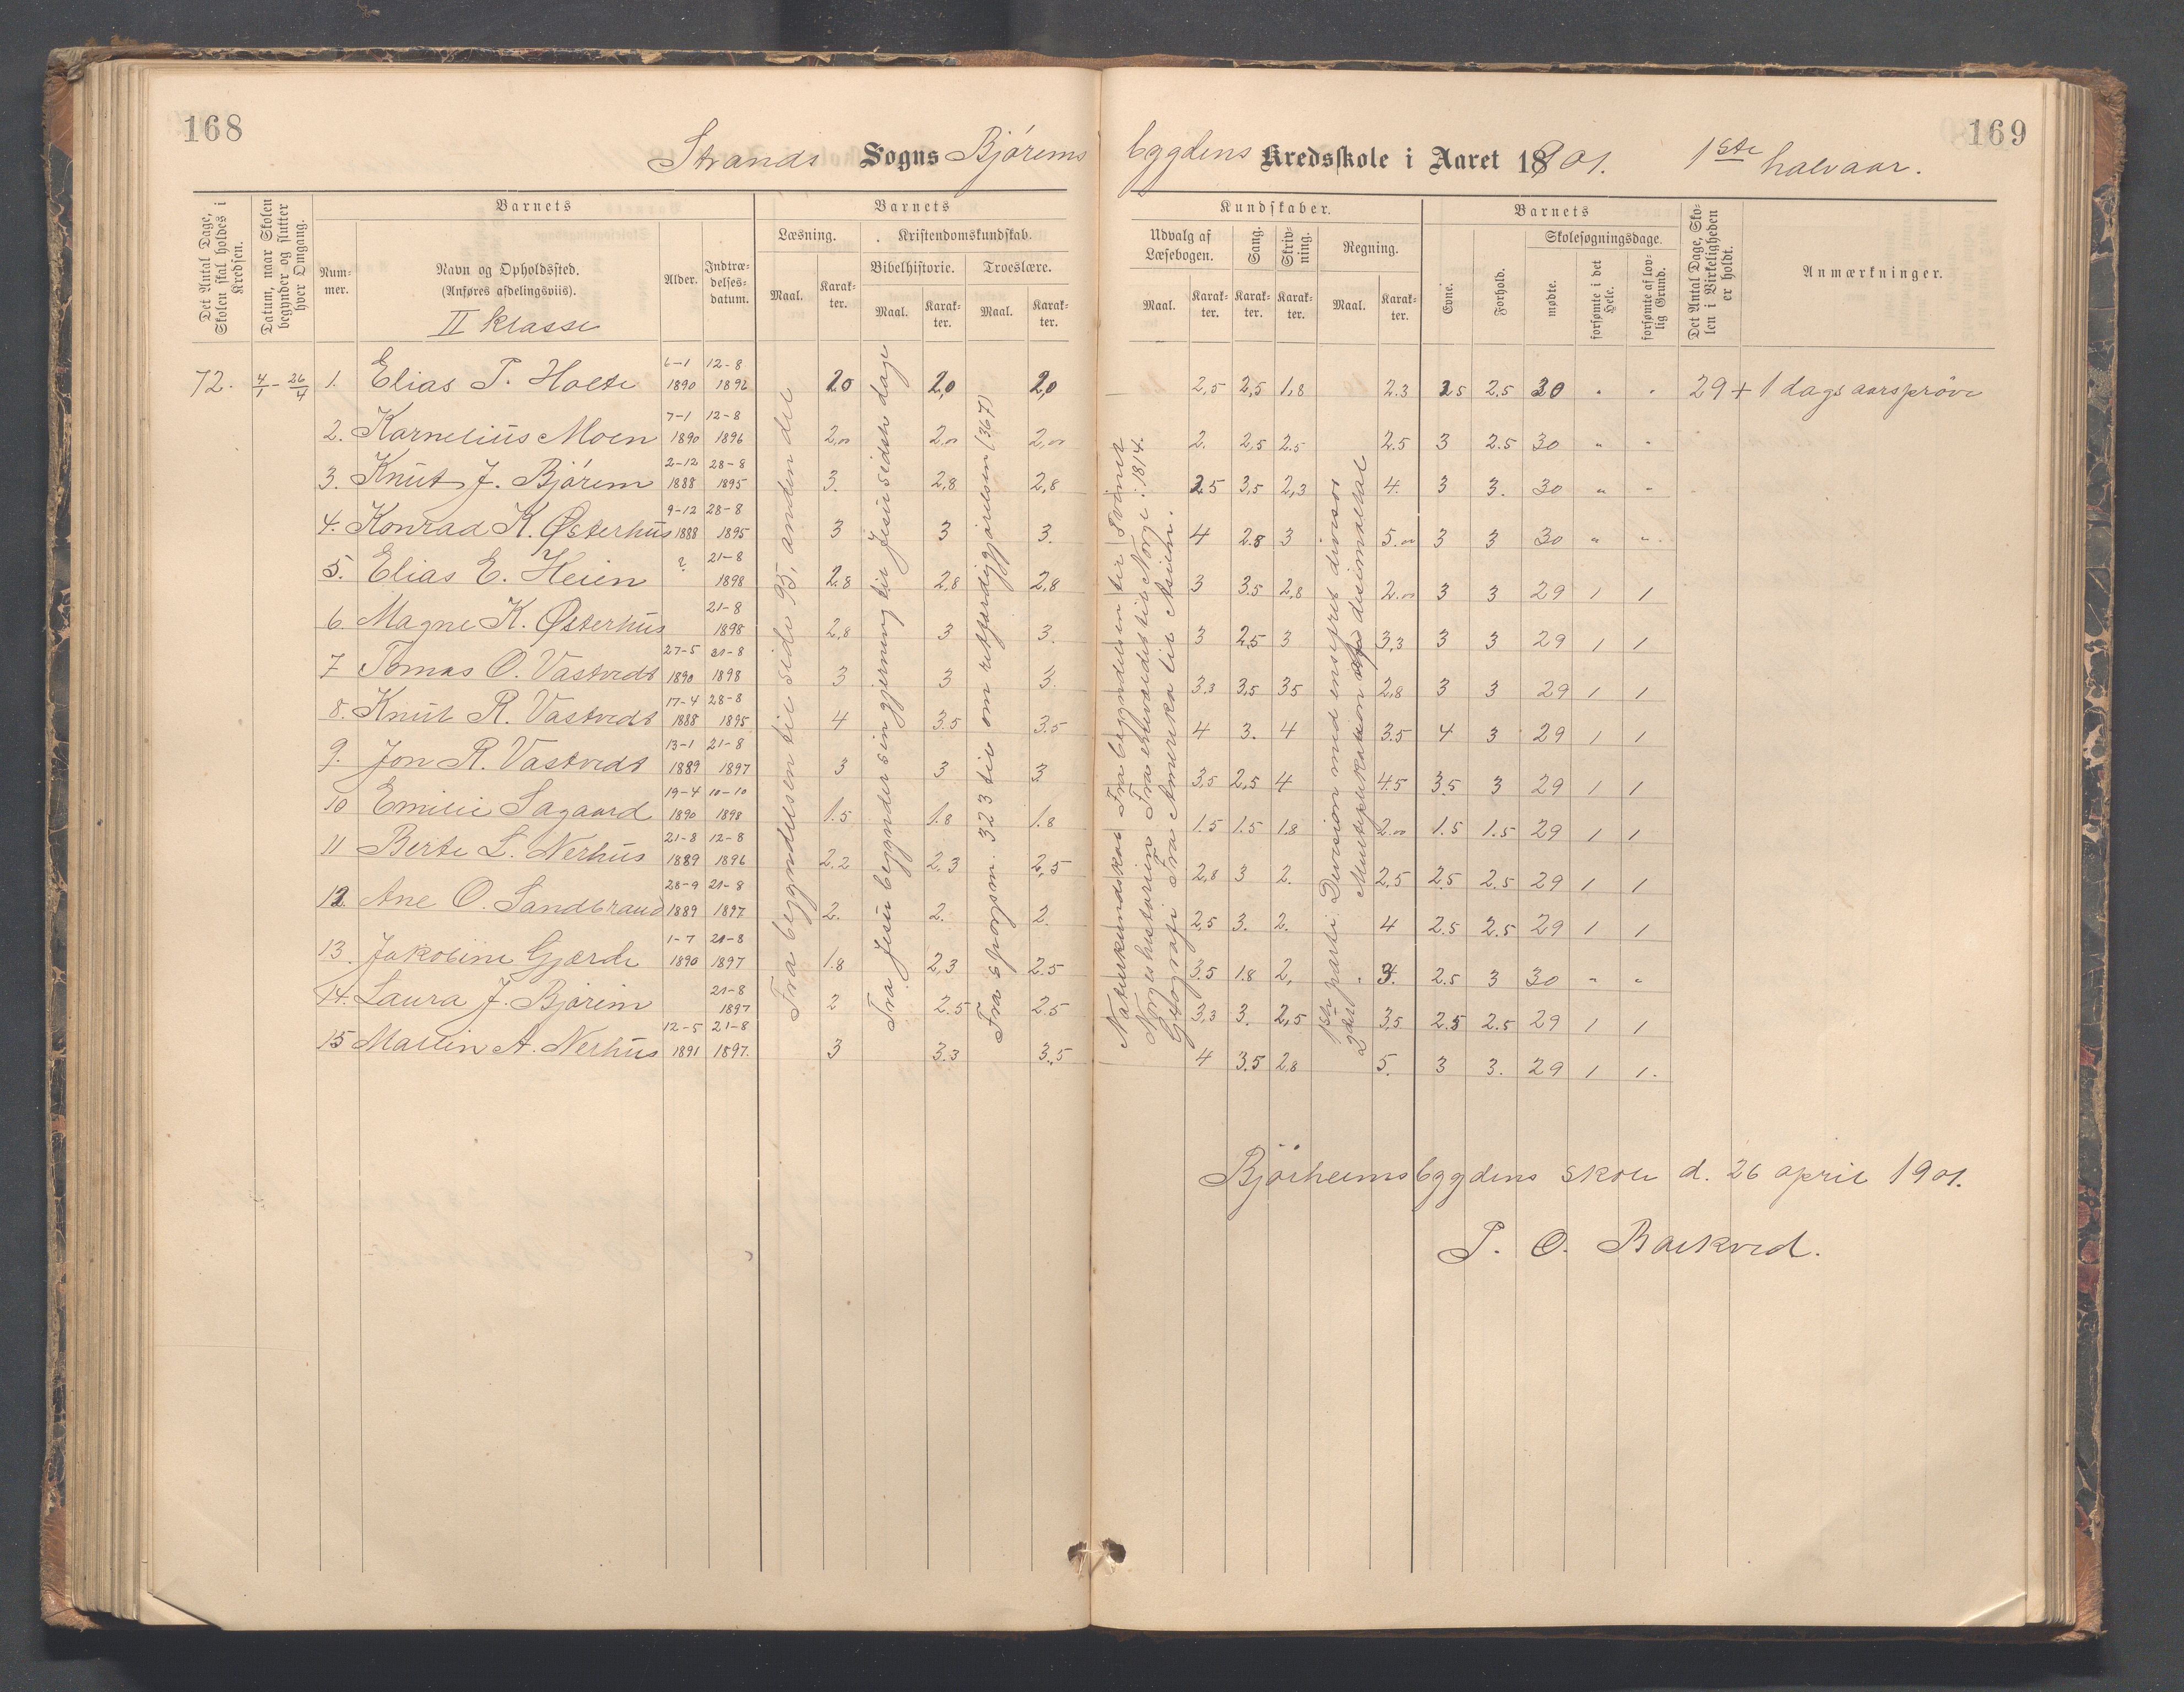 168
169
Strands Sogns Bjórems bygdens Kredsskole i Aaret 1901. 1ste halvaar.
Det Antal Dage, Skolen skal holdes i Kredsen.
Datum, naar Skolen begynder og slutter hver Omgang.
Barnets
Num-mer.
Navn og Opholdssted. (Anføres afdelingsviis).
II klasse
Alder.
Indtræ-delses-datum.
Barnets
Læsning.
Maal.
Karak-ter.
Kristendomskundskab.
Bibelhistorie.
Maal.
Karak-ter.
Troeslære.
Maal.
Karak-ter.
Kundskaber.
Udvalg af Læsebogen.
Maal.
Karak-ter.
Sang.
Karak-ter.
Skriv-ning.
Karak-ter.
Regning.
Maal.
Karak-ter.
Barnets
Evne.
Forhold.
Skolesøgningsdage.
mødte.
forsømte i det Hele.
forsømte af lov-lig Grund.
Det Antal Dage, Sko-len i Virkeligheden er holdt.
Anmærkninger.
72. 4/1 - 26/4 1. Elias T. Holte 6-1 1890 12-8 1896 2,0 2,0 2,0 2,5 2,5 1,8 2.3 2.5 2.5 30 " " 29 + 1 dags aarsprøve
2. Karnelius Moen 7-1 1890 12-8 1896 2,00 2,00 2,00 2. 2,5 2.5 2.5 3 2.5 30 " "
3. Knut J. Bjórem 2-12 1888 28-8 1895 3. 2,8 2,8 2.5 3,5 2,3 4. 3 3. 30 " "
4. Konrad K. Østerhus 9-12 1888 28-8 1895 3 3 3. 4 2.8 3 5.00 3 3 30 " "
5. Elias E. Heien ? 21-8 1898 2.8 2.8 2,8 3 3.5 2,8 2.00 3 3 29 1 1
6. Magne K. Østerhus 21-8 1898 2,8 3 3. 3 2,5 3 3,3 3 3 29 1 1
7 Tomas O. Vastvedt 27-5 1890 21-8 1898 3 3 3. 3.3 3,5 3.5 2,8 3 3 29 1 1
8. Knut R. Vastvedt 17-4 1888 28-8 1895 4 3.5 3.5 4 3. 4 3.5 4 3 29 1 1
9. Jon R. Vastvedt 13-1 1889 21-8 1897 3 3 3 3,5 2,5 4 4.5 3.5 3 29 1 1
10 Emilie Sagaard 19-4 1890 10-10 1898 1.5 1.8 1.8 1.5 1.5 1.8 2.00 1.5 1.5 29 1 1
11 Berte L. Nerhus 21-8 1889 12-8 1896 2.2 2,3 2,5 2,8 3 2. 2,5 2.5 2.5 29 1 1
12. Ane O. Sandbraud 28-9 1889 21-8 1897 2. 2. 2. 2,5 3. 2. 4 2.5 2.5 29 1 1
13. Jakobine Gjærde 1-7 1890 21-8 1897 1.8 2,3 2.5 3.5 1.8 2, 3. 2.5 3 30 " "
14. Laura J. Bjórem 21-8 1897 2 2.5 2.5 3,3 3. 2,5 3,5 2.5 2.5 29 1 1
15 Martin A. Nerhus 12-5 1891 21-8 1897. 3 3.3 3.5 4 3.5 2.8 5. 3 3. 29 1 1.
Fra begyndelsen til side 95, anden del
Fra Jesu begynder sin gjerning til Jesu sidste dage
Fra spørgsm. 323 til om retfærdiggjørelsen (367)
Naturkundskab Fra begyndelsen til Svovel
Norgeshistorien Fra eneveldet til Norge i 1814.
Geografi Fra Amerika til Asien.
1ste parti Division med ensifret divisor
2det Multiplikation af desimaltal
Bjórheimsbygdens skole d. 26 april 1901.
T. O. Barkved.